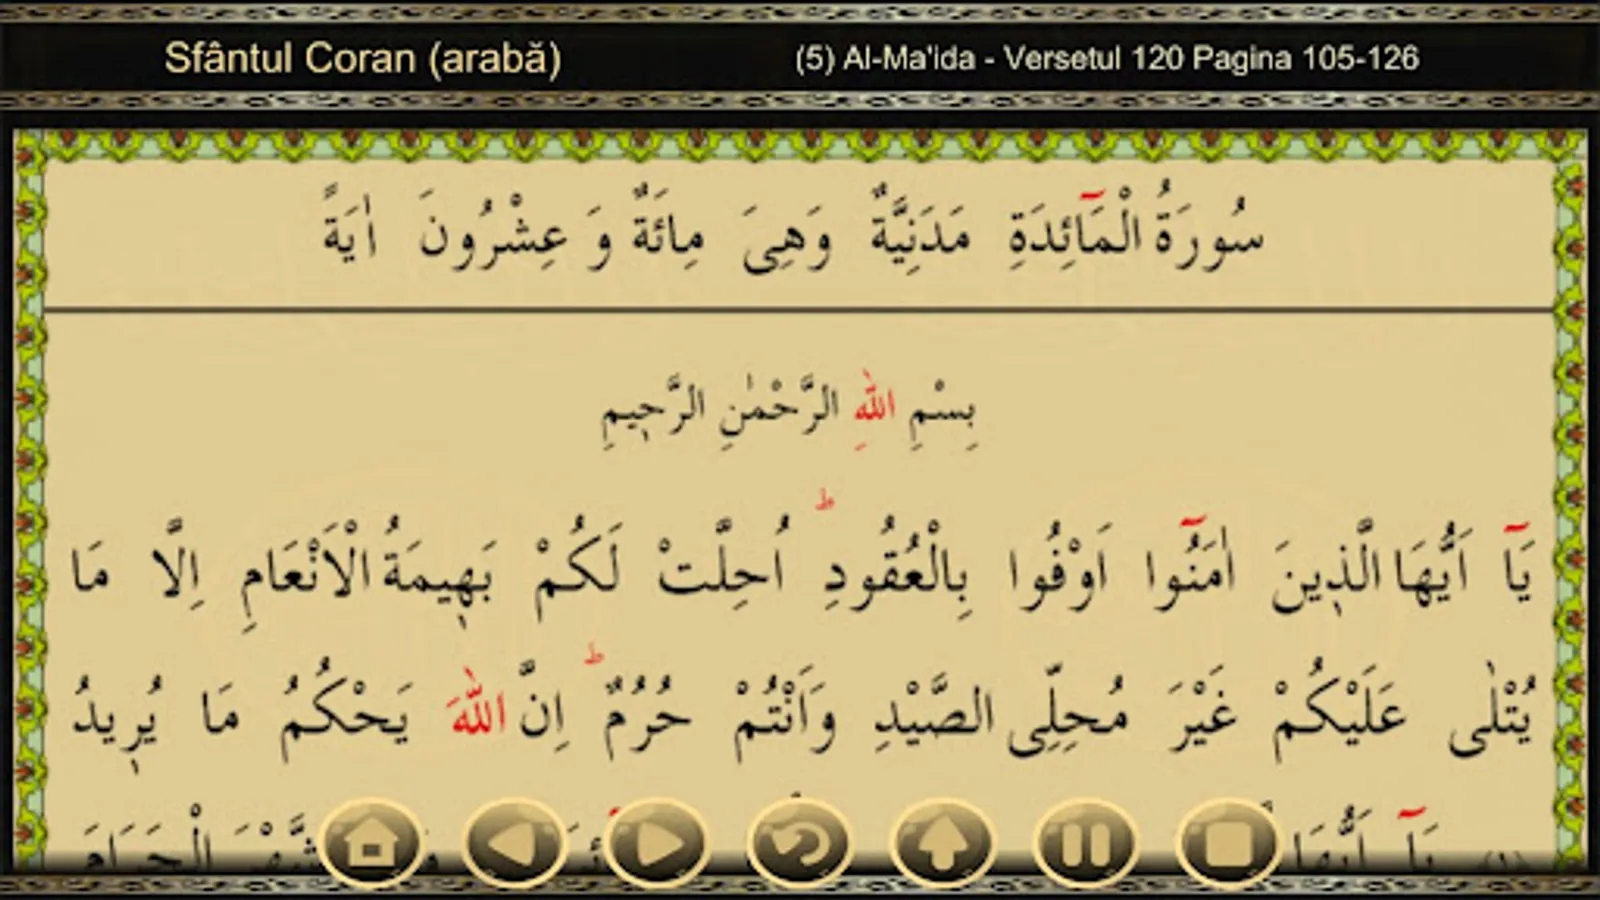 Sfântul Coran (arabă)
(5) Al-Ma'ida - Versetul 120 Pagina 105-126
سُورَةُ الْمَٓائِدَةِ مَدَنِيَّةٌ وَهِىَ مِائَةٌ وَ عِشْرُونَ اٰيَةً
بِسْمِ اللّٰهِ الرَّحْمٰنِ الرَّحٖيمِ
يَٓا اَيُّهَا الَّذٖينَ اٰمَنُٓوا اَوْفُوا بِالْعُقُودِؕ اُحِلَّتْ لَكُمْ بَهٖيمَةُ الْاَنْعَامِ اِلَّا مَا
يُتْلٰى عَلَيْكُمْ غَيْرَ مُحِلِّى الصَّيْدِ وَاَنْتُمْ حُرُمٌؕ اِنَّ اللّٰهَ يَحْكُمُ مَا يُرٖيدُ